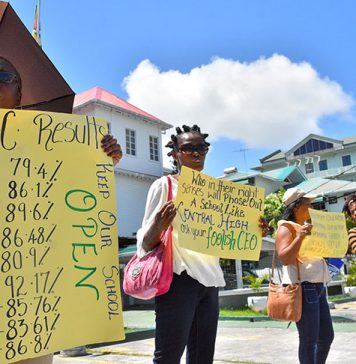 C. Results
79.4%
86.1%
89.6%
86.48%
80.9%
92.17%
85.76%
83.61%
86.8%
Keep Our School
OPEN
Who in their right
Senses will Phase Out
A School Like
CENTRAL High
Ask your
foolish CEO